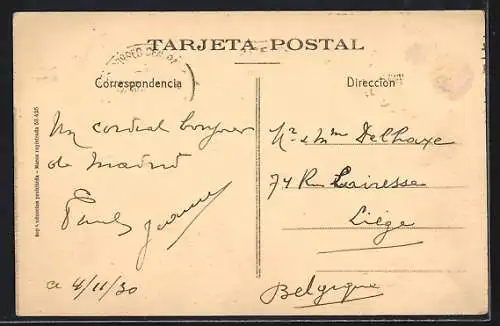 TARJETA POSTAL
Correspondencia
Direccion
Un cordial bonjour
de Madrid
Paul Jeanne
ce 4/11/30
Mr & Mme Delhaxe
74 Rue Lairesse
Liège
Belgique